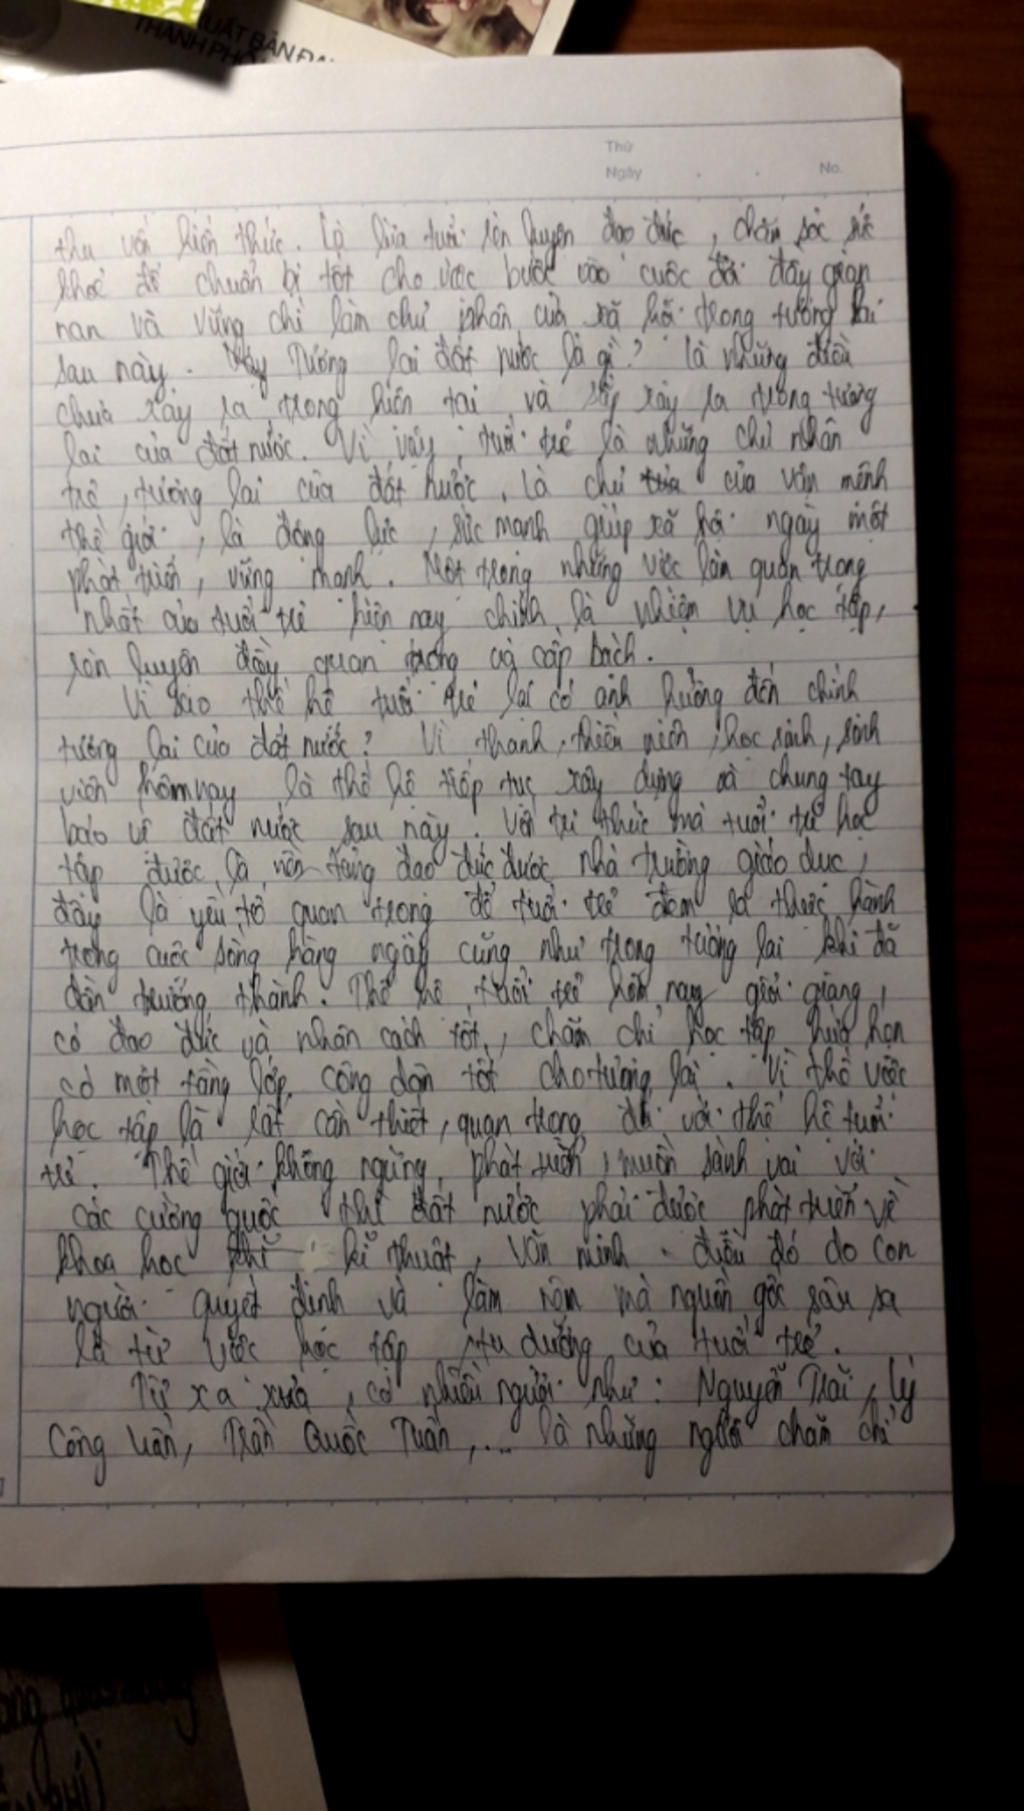 XUẤT BẢN ĐẠI
THÀNH PHỐ
Thứ
Ngày . . No.
thu vốn kiến thức. Là lứa tuổi rèn luyện đạo đức, chăm sóc sức
khoẻ để chuẩn bị tốt cho việc bước vào cuộc đời đầy gian
nan và vững chỉ làm chủ nhân của xã hội trong tương lai
sau này. Tương lai đất nước là gì? Là những điều
chưa xảy ra trong hiện tại và sắp xảy ra trong tương
lai của đất nước. Vì vậy, tuổi trẻ là những chủ nhân
trẻ, tương lai của đất nước, là chủ của vận mệnh
thế giới, là động lực, sức mạnh giúp xã hội ngày một
phát triển, vững mạnh. Một trong những việc làm quan trọng
nhất của tuổi trẻ hiện nay chính là nhiệm vụ học tập,
rèn luyện đầy quan trọng và cấp bách.
Vì sao thế hệ tuổi trẻ lại có ảnh hưởng đến chính
tương lai của đất nước? Vì thanh, thiếu niên, học sinh, sinh
viên hôm nay là thế hệ tiếp tục xây dựng và chung tay
bảo vệ đất nước sau này. Với tri thức mà tuổi trẻ học
tập được là nền tảng đạo đức được nhà trường giáo dục,
đây là yếu tố quan trọng để tuổi trẻ đem ra thực hành
trong cuộc sống hằng ngày cũng như trong tương lai khi đã
dần trưởng thành. Thế hệ tuổi trẻ hôm nay giỏi giang,
có đạo đức và nhân cách tốt, chăm chỉ học tập hứa hẹn
có một tầng lớp công dân tốt cho tương lai. Vì thế việc
học tập là rất cần thiết, quan trọng đối với thế hệ tuổi
trẻ. Thế giới không ngừng phát triển, muốn sánh vai với
các cường quốc thì đất nước phải được phát triển về
khoa học kĩ thuật, văn minh. điều đó do con
người quyết định và làm nên mà nguồn gốc sâu xa
là từ việc học tập, tu dưỡng của tuổi trẻ.
Từ xa xưa, có nhiều người như: Nguyễn Trãi, Lý
Công Uẩn, Trần Quốc Tuấn,... là những người chăm chỉ